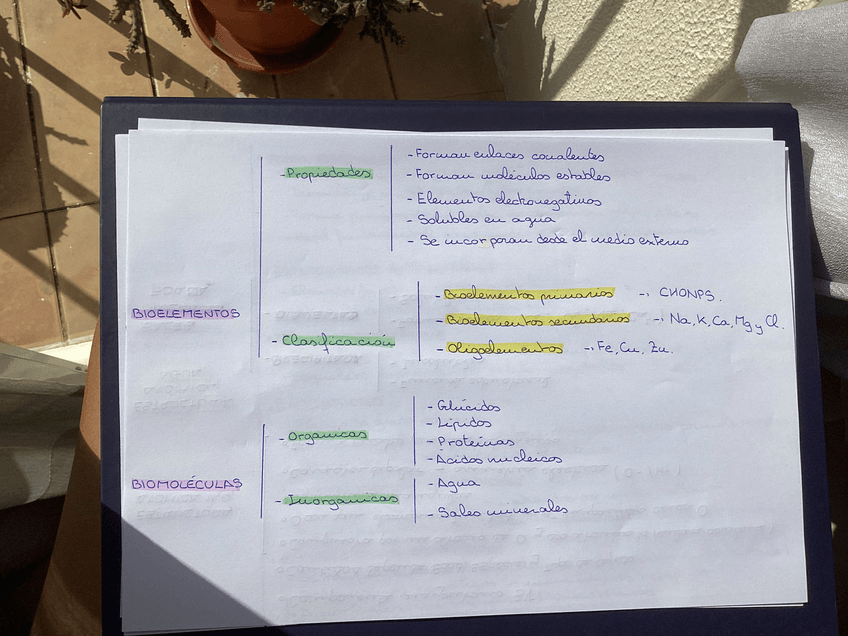 - Forman enlaces covalentes
- Propiedades
- Forman moléculas estables
- Elementos electronegativos
- Solubles en agua
- Se incorporan desde el medio externo
BIOELEMENTOS
- Bioelementos primarios → CHONPS.
- Bioelementos secundarios → Na, K, Ca, Mg y Cl.
- Clasificación
- Oligoelementos → Fe, Cu, Zn.
- Orgánicas
- Glúcidos
- Lípidos
- Proteínas
- Ácidos nucleicos
BIOMOLÉCULAS
- Inorgánicas
- Agua
- Sales minerales